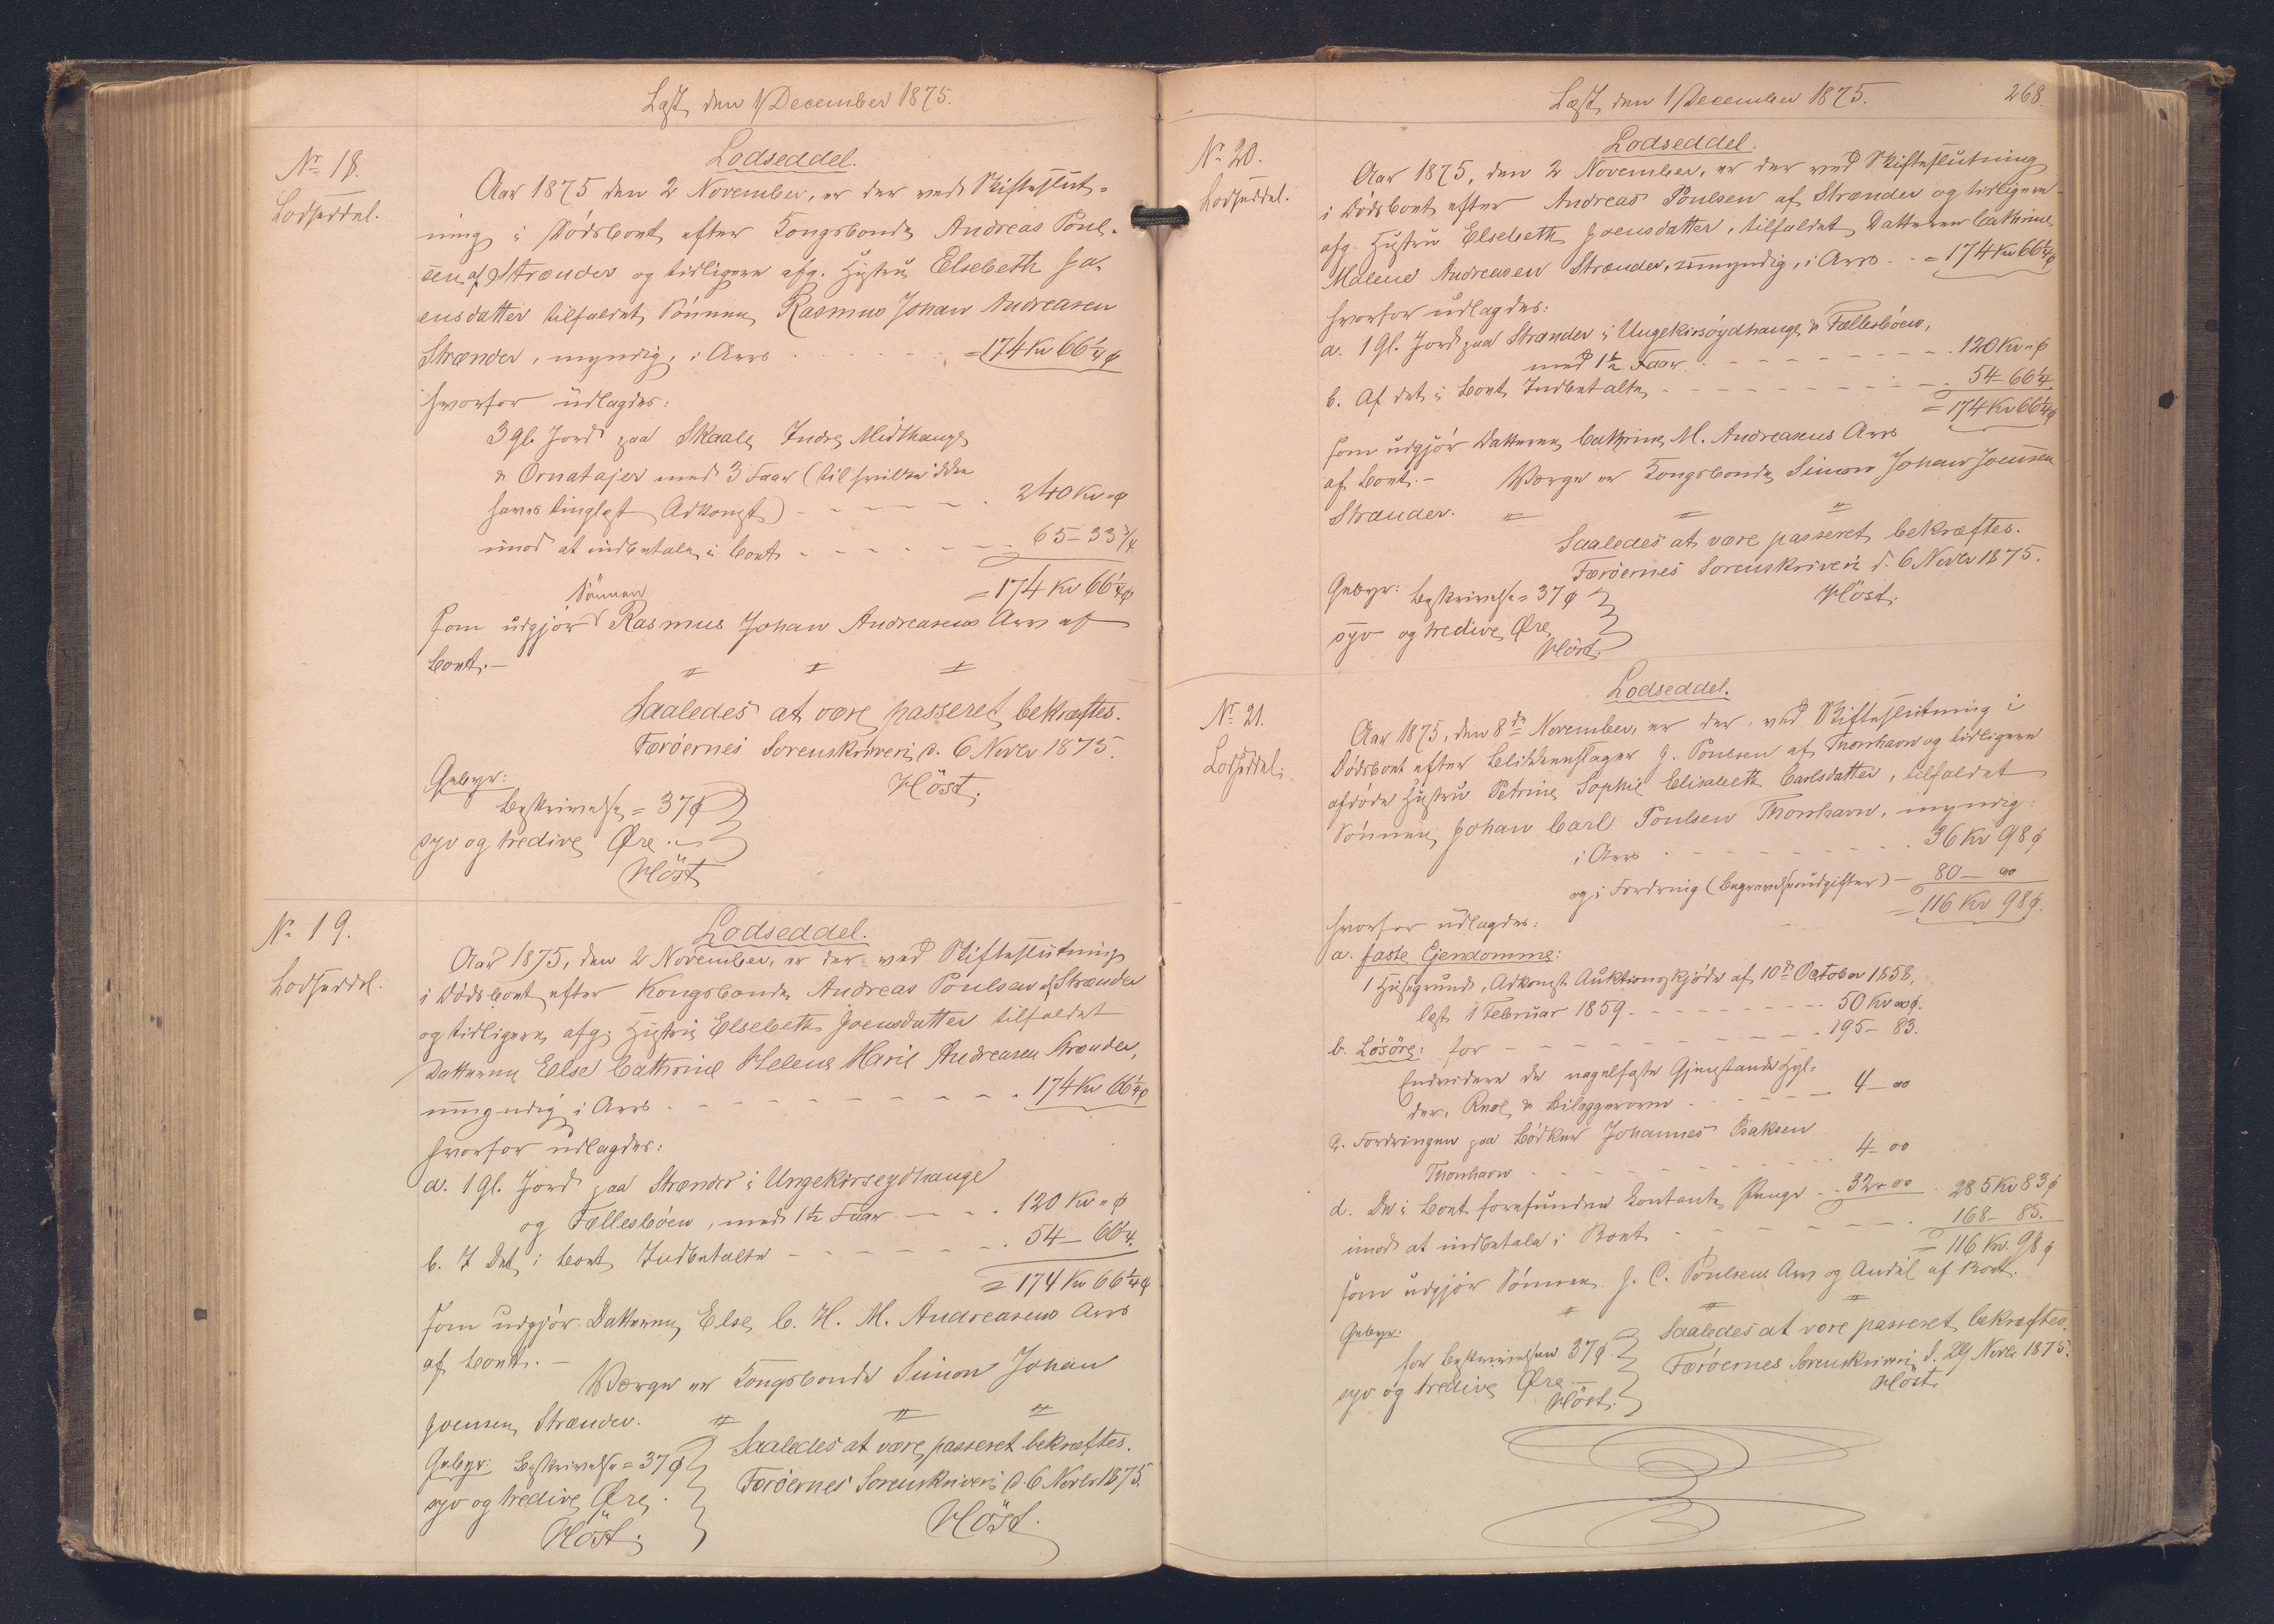 Læst den 1 December 1875.
No 18.
Lodseddel.
Lodseddel.
Aar 1875 den 2 November, er der ved Skifteslut-
ning i Dødsboet efter Kongsbonde Andreas Poul-
sen af Strænder og tidligere afg. Hustru Elsebeth Jo-
ensdatter tilfaldet Sønnen Rasmus Johan Andreasen
Strænder, myndig, i Arv = 174 Kr 66 1/4 ø
hvorfor udlagdes:
3 gl. Jord paa Skaale Indre Midthauge
& Ornatajer med 3 Faar (til hvilke ikke
haves tinglæst Adkomst) 240 Kr " ø
imod at indbetale i Boet 65 - 33 3/4
= 174 Kr 66 1/4 ø
Sønnen
som udgjør Rasmus Johan Andreasens Arv af
Boet.-
Saaledes at være passeret bekræftes.
Færöernes Sorenskriveri, d. 6 Novbr 1875.
Höst.
Gebyr:
Beskrivelse = 37 ø
syv og tredive Øre.
Höst
No 19.
Lodseddel.
Lodseddel.
Aar 1875, den 2 November, er der ved Skifteslutning
i Dødsboet efter Kongsbonde Andreas Poulsen af Strænder
og tidligere afg. Hustru Elsebeth Joensdatter tilfaldet
Datteren Else Cathrine Helene Marie Andreasen Strænder,
umyndig i Arv 174 Kr 66 1/4 ø
hvorfor udlagdes:
a. 1 gl. Jord paa Strænder i Ungekirseydhauge
og Fællesbøen, med 1 1/2 Faar 120 Kr " ø
b. I Det i Boet Indbetalte 54 - 66 1/4
= 174 Kr 66 1/4 ø
som udgjør Datteren Else C. H. M. Andreasens Arv
af Boet.-
Værge er Kongsbonde Simon Johan
Joensen, Strænder.
Saaledes at være passeret bekræftes.
Færöernes Sorenskriveri, d. 6 Novbr 1875.
Höst.
Gebyr: Beskrivelse = 37 ø
syv og tredive Øre.
Höst.
Læst den 1 December 1875. 268.
No 20.
Lodseddel.
Lodseddel.
Aar 1875, den 2 November, er der ved Skifteslutning
i Dødsboet efter Andreas Poulsen af Strænder og tidligere
afg. Hustru Elsebeth Joensdatter, tilfaldet Datteren Cathrine
Malene Andreasen Strænder, umyndig, i Arv = 174 Kr 66 1/4 ø
hvorfor udlagdes:
a. 1 gl. Jord paa Strander i Ungekirsöydhauge & Fællesbøen,
med 1 1/2 Faar 120 Kr " ø
b. Af det i Boet Indbetalte 54 - 66 1/4
= 174 Kr 66 1/4 ø
som udgjør Datteren Cathrine M. Andreasens Arv
af Boet.- Værge er Kongsbonde Simon Johan Joensen
Strænder.
Saaledes at være passeret bekræftes.
Færöernes Sorenskriveri d. 6 Novbr 1875.
Höst.
Gebyr: Beskrivelse = 37 ø
syv og tredive Øre
Höst.
No 21.
Lodseddel.
Lodseddel.
Aar 1875, den 8de November, er der ved Skifteslutning i
Dødsboet efter Blikkenslager J. Poulsen af Thorshavn og tidligere
afdøde Hustru Petrine Sophie Elisabeth Carlsdatter, tilfaldet
Sønnen Johan Carl Poulsen Thorshavn, myndig:
i Arv 36 Kr 98 ø
og i Fordring (Begravelsesudgifter) 80 - 00
= 116 Kr 98 ø.
hvorfor udlagdes:
a. faste Ejendomme:
1 Husegrund, Adkomst Auktionsskjøde af 10de October 1858,
læst 1 Februar 1859. 50 Kr 00 ø.
b. Løsøre: for 195 - 83.
Endvidere de nagelfaste Gjenstande Hyl-
der, Reol & Bilæggerovn 4 - 00
c. Fordringen paa Bødker Johannes Isaksen
Thorshavn 4 - 00
d. De i Boet forefundne Kontante Penge 32 - 00 285 Kr 83 ø
imod at indbetale i Boet 168 - 85.
= 116 Kr. 98 ø
som udgjør Sønnen J. C. Poulsens Arv og Andel af Boet.
Saaledes at være passeret bekræftes.
Færöernes Sorenskriveri, d. 29 Novbr 1875.
Höst.
Gebyr:
for Beskrivelsen 37 ø
syv og tredive Øre.
Höst.